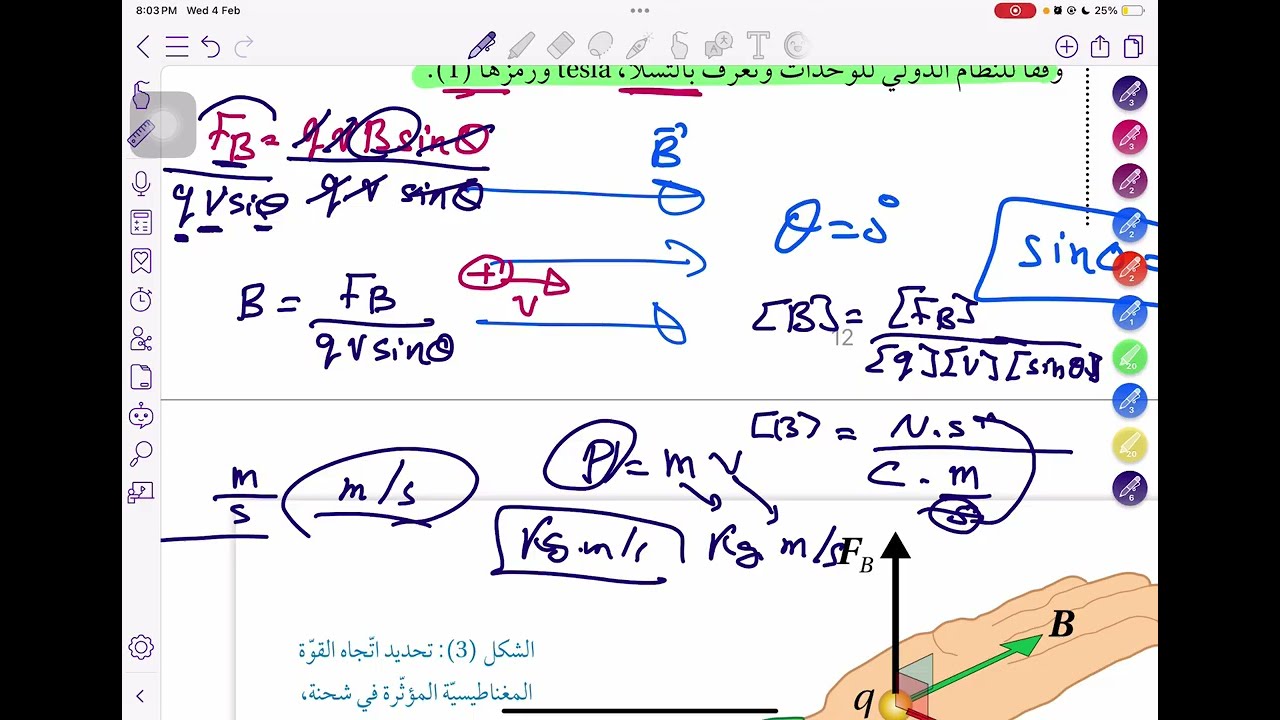 8:03 PM Wed 4 Feb
25%
وفقًا للنظام الدولي للوحدات وتعرف بالتسلا، tesla ورمزها (T).
F_B = qvB sinθ
qv sinθ qv sinθ
B = F_B / qv sinθ
B
+ v
θ = 0°
sinθ =
[B] = [F_B] / [q][v][sinθ]
12
m/s m/s
P = m v
Kg.m/s Kg m/s
[B] = N.s / C.m/s
F_B
B
q
الشكل (3): تحديد اتّجاه القوّة
المغناطيسيّة المؤثّرة في شحنة،